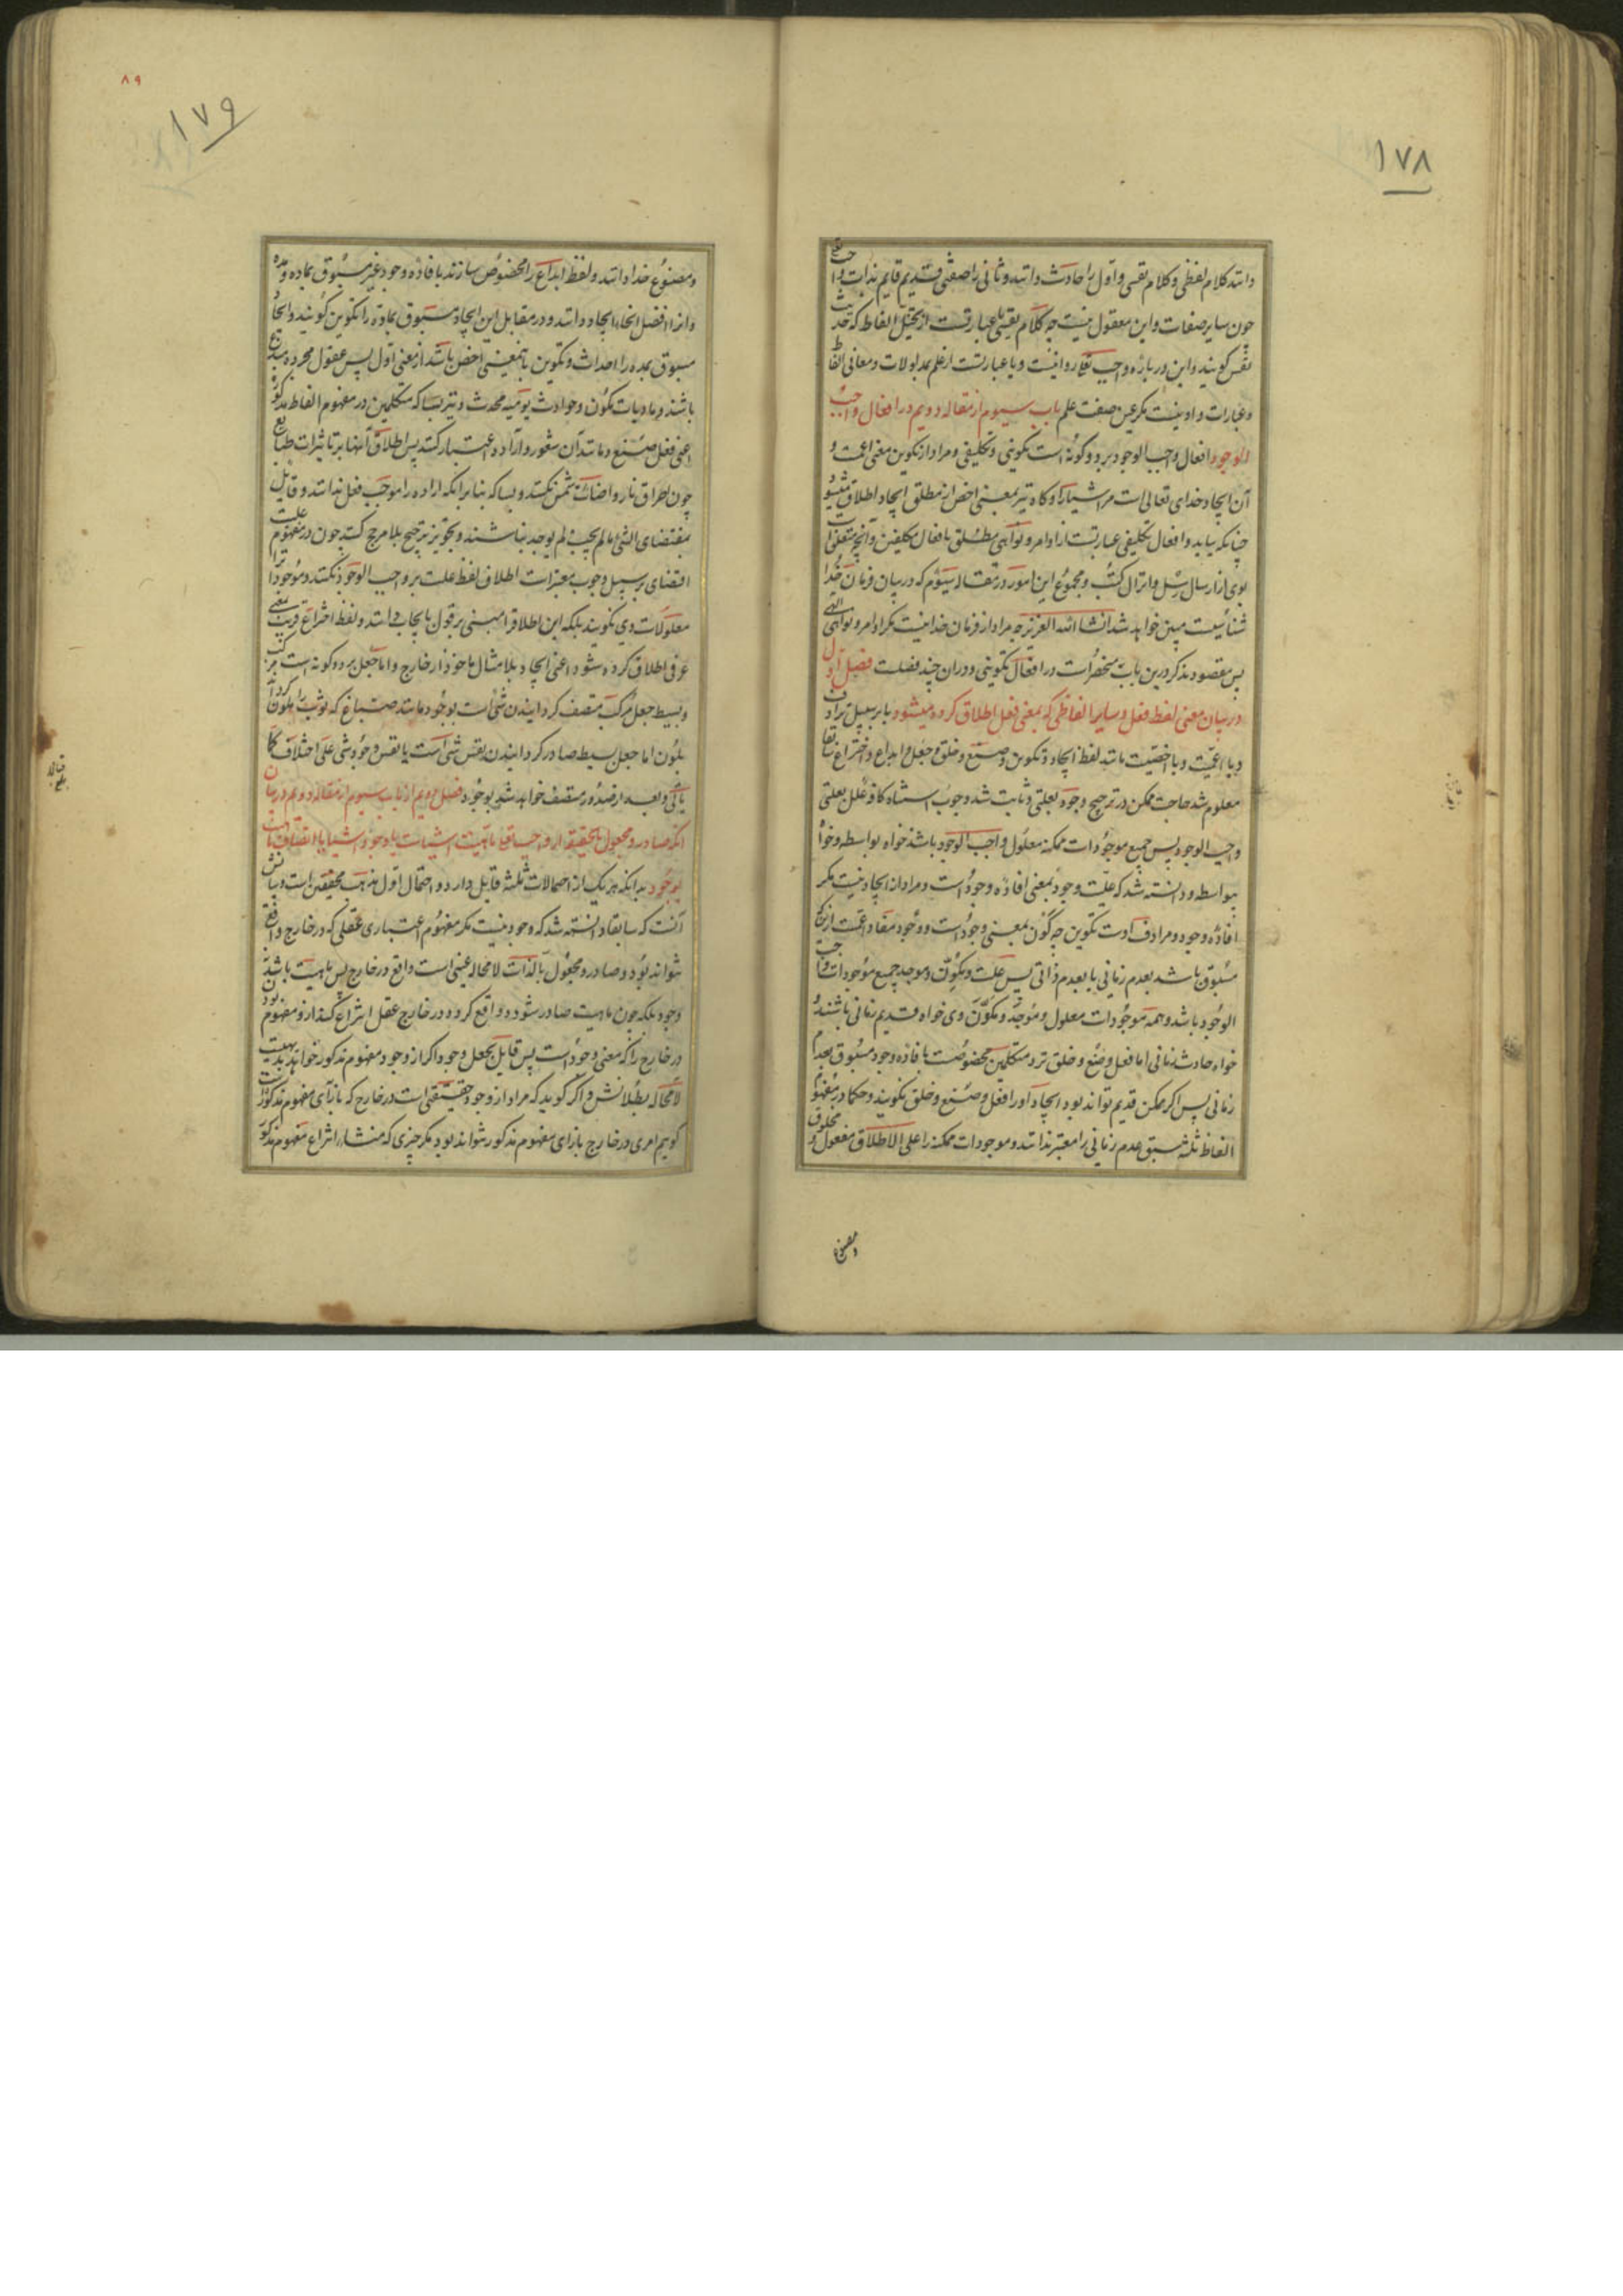 ۱۷۸
دانند کلام لفظی و کلام نفسی و اول را حادث دانند و ثانی را صفتی قدیم قایم بذات واجب تعالی
چون سایر صفات و این معقول نیست چه کلام نفسی یا عبارتست از تخیل الفاظ که تحدیث
نفس گویند و این درباره واجب تعالی روا نیست و یا عبارتست از علم بمدلولات و معانی الفاظ
و عبارات و او نیست مگر عین صفت علم باب سیوم از مقاله دویم در افعال واجب
الوجود افعال واجب الوجود بر دو گونه است تکوینی و تکلیفی و مراد از تکوین معنی اعمست و
آن ایجاد خدای تعالی است مر اشیا را و گاه نیز بمعنی اخص از مطلق ایجاد اطلاق میشود
چنانکه بیاید و افعال تکلیفی عبارتست از اوامر و نواهی متعلق بافعال مکلفین و آنچه متعلق است
بوی از ارسال رسل و انزال کتب و مجموع این امور در مقاله سیوم که در بیان فرمان خدا
شناسیست مبین خواهد شد انشاء الله العزیز چه مراد از فرمان خدا نیست مگر اوامر و نواهی الهی
پس مقصود بذکر درین باب منحصر است در افعال تکوینی و در ان چند فصلست فصل اول
در بیان معنی لفظ فعل و سایر الفاظی که بمعنی فعل اطلاق کرده میشود یا بر سبیل ترادف
و یا اعمیت و یا اخصیت مانند لفظ ایجاد و تکوین و صنع و خلق و جعل و ابداع و اختراع سابقا
معلوم شد حاجت ممکن در ترجیح وجود بعلتی و ثابت شد وجوب استناد کافه علل بعلتی
واجب الوجود پس جمیع موجودات ممکنه معلول واجب الوجود باشد خواه بواسطه و خواه
بیواسطه و دانسته شد که علیت وجود بمعنی افاده وجود است و مراد از ایجاد نیست مگر
افاده وجود و مرادف اوست تکوین چه کون بمعنی وجود است و وجود مفاد اعمست از آنکه
مسبوق باشد بعدم زمانی یا بعدم ذاتی پس علت و مکون و موجد جمیع موجودات واجب
الوجود باشد و همه موجودات معلول و موجد و مکون وی خواه قدیم زمانی باشند و
خواه حادث زمانی اما فعل و صنع و خلق نزد متکلمین مخصوصست بافاده وجود مسبوق بعدم
زمانی پس اگر ممکن قدیم تواند بود ایجاد او را فعل و صنع و خلق نگویند و حکما در مفهوم
الفاظ ثلثه سبق عدم زمانی را معتبر ندانند و موجودات ممکنه را علی الاطلاق مفعول و مخلوق
و مصنوع
۸۹
۱۷۹
و مصنوع خدا دانند و لفظ ابداع را مخصوص سازند بافاده وجود غیر مسبوق بماده و مده
و انرا افضل انحاء ایجاد دانند و در مقابل این ایجاد مسبوق بماده را تکوین گویند و ایجاد
مسبوق بمده را احداث و تکوین بآنمعنی اخص باشد از معنی اول پس عقول مجرده مبدع
باشند و مادیات مکون و حوادث یومیه محدث و نیز بسا که متکلمین در مفهوم الفاظ مذکوره
اعنی فعل صنع و مانند آن شعور و اراده اعتبار کنند پس اطلاق آنها بر تاثیرات طبایع
چون احراق نار و اضاءت شمس نکنند و بسا که بنا برانکه اراده را موجب فعل ندانند و قایل
بمقتضای الشی ما لم یجب لم یوجد نباشند و تجویز ترجیح بلا مرجح کنند چون در مفهوم علت
اقتضای بر سبیل وجوب معتبر است اطلاق لفظ علت بر واجب الوجود نکنند و موجودات را
معلولات وی نگویند بلکه این اطلاق را مبنی بر قول بایجاب دانند و لفظ اختراع قریب بمعنی
عرفی اطلاق کرده شود اعنی ایجاد بلا مثال ماخوذ از خارج و اما جعل بر دو گونه است مرکب
و بسیط جعل مرکب متصف گردانیدن شی است بوجود مانند صباغ که ثوب را گرداند ملون
بلون اما جعل بسیط صادر گردانیدن نفس شی است یا نفس وجود شی علی اختلاف کما
یاتی و بعد از صدور متصف خواهد شد بوجود فصل دویم از باب سیوم از مقاله دویم در بیان
انکه صادر و مجعول بالحقیقه از واجب تعالی ماهیت اشیاست یا وجود اشیا یا اتصاف ماهیت
بوجود بدانکه هر یک از احتمالات ثلثه قایل دارد و احتمال اول مذهب محققین است و بیانش
آنست که سابقا دانسته شد که وجود نیست مگر مفهوم اعتباری عقلی که در خارج واقع
نتواند بود و صادر و مجعول بالذات لا محاله عینی است واقع در خارج پس ماهیت باشد نه
وجود بلکه چون ماهیت صادر شود و واقع گردد در خارج عقل انتزاع کند از و مفهوم بودن
در خارج را که معنی وجود است پس قایل بجعل وجود اگر از وجود مفهوم مذکور خواهد بدیهیست
لا محاله بطلانش و اگر گوید که مراد از وجود حقیقتی است در خارج که بازای مفهوم مذکور است
گوییم امری در خارج بازای مفهوم مذکور نتواند بود مگر چیزی که منشاء انتزاع مفهوم مذکور